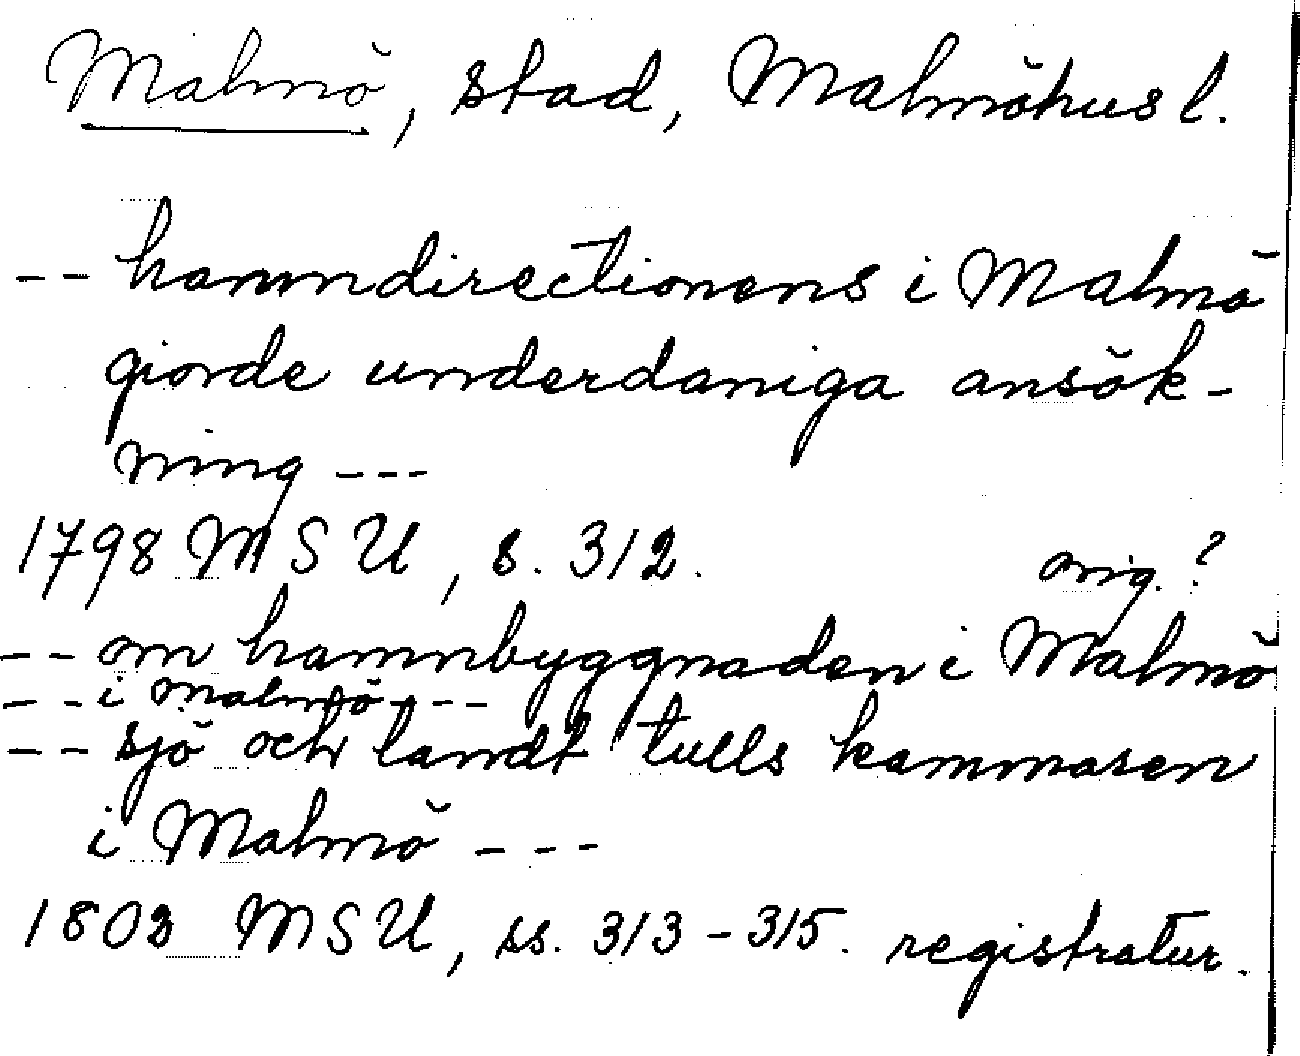 Malmö, stad, Malmöhus l.
-- hamndirectionens i Malmö
giorde underdaniga ansök-
ning ---
1798 MSU, s. 312. orig. ?
-- om hamnbyggnaden i Malmö
-- i Malmö ---
-- sjö och landt tulls kammaren
i Malmö ---
1802 MSU, ss. 313-315. registratur.